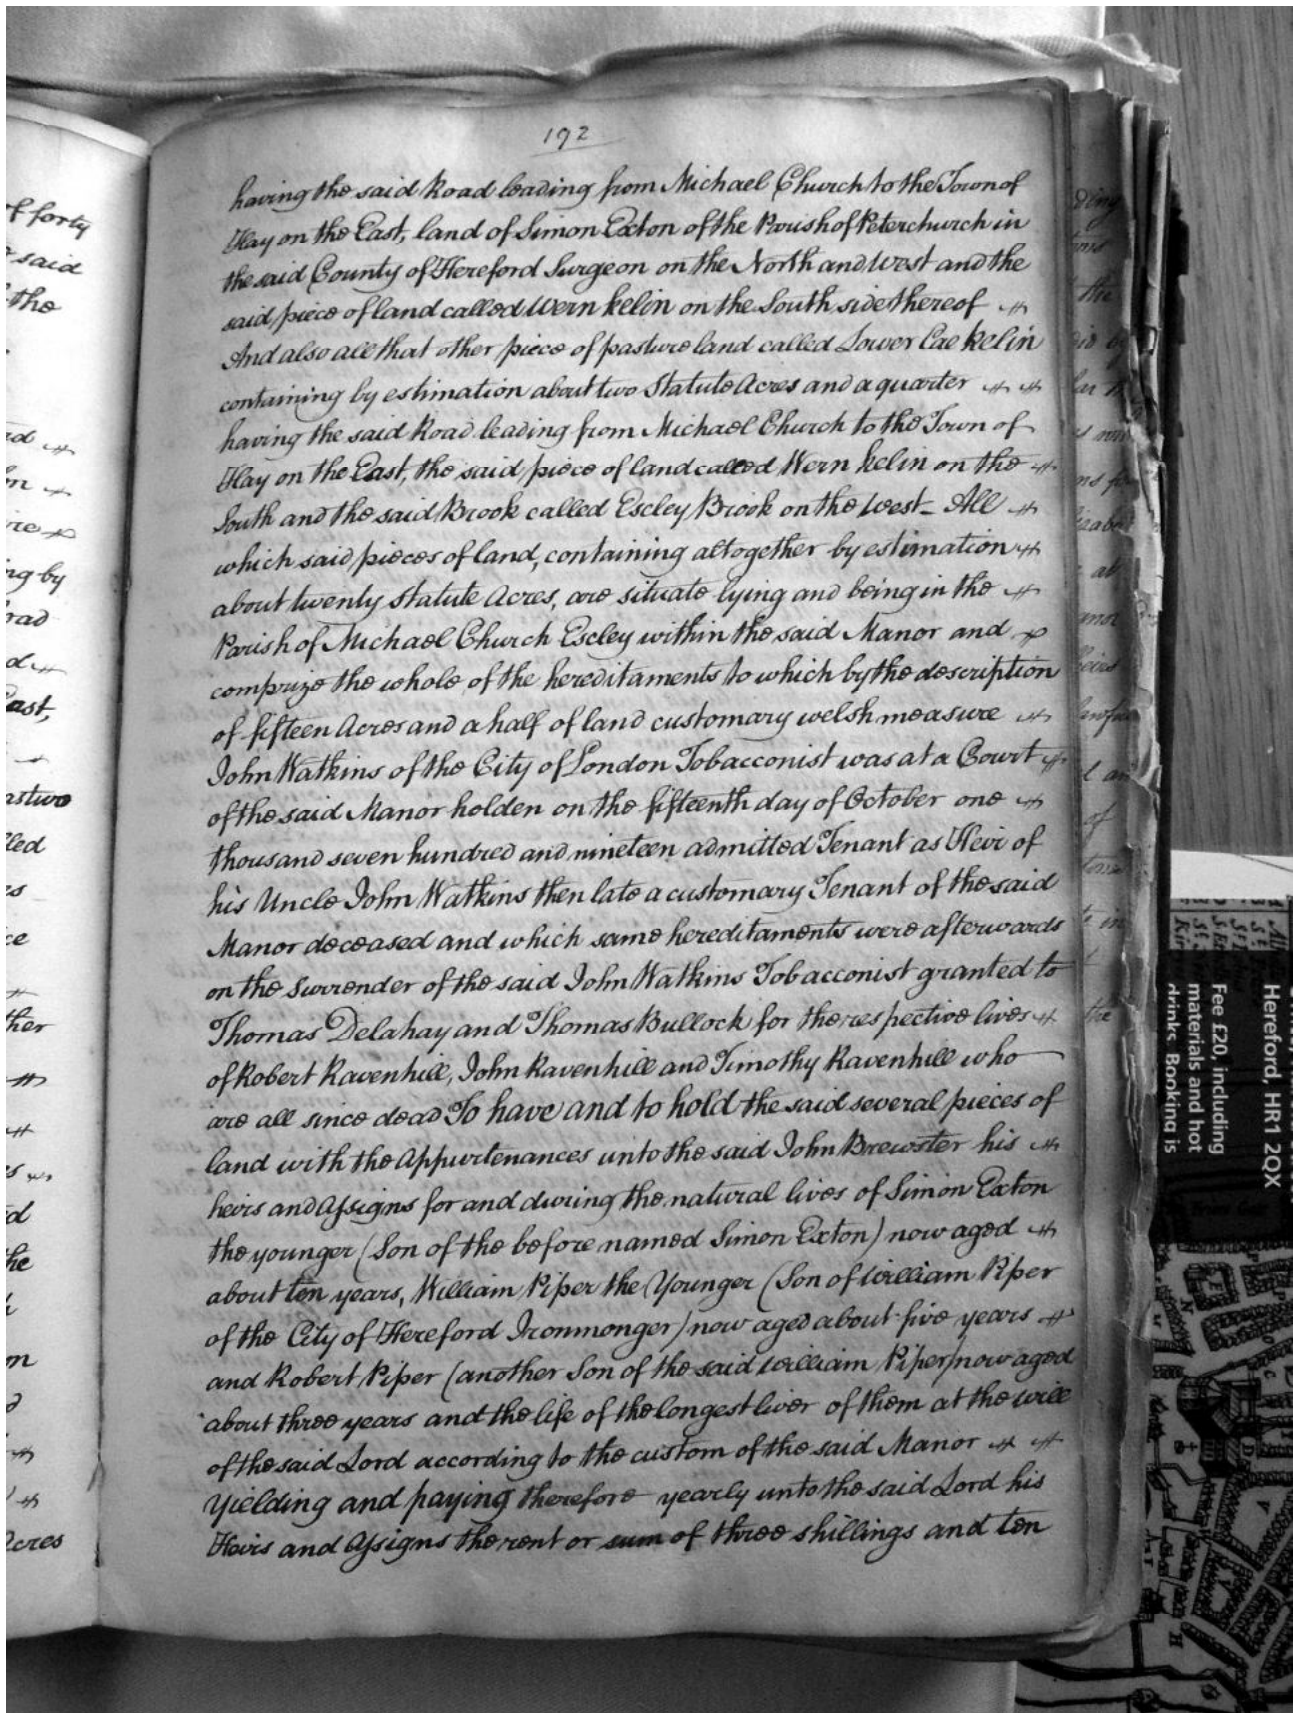 192
having the said Road leading from Michael Church to the Town of
Hay on the East, land of Simon Exton of the Parish of Peterchurch in
the said County of Hereford Surgeon on the North and West and the
said piece of land called Wern kelin on the South side thereof
And also all that other piece of pasture land called Lower Cae kelin
containing by estimation about two Statute Acres and a quarter
having the said Road leading from Michael Church to the Town of
Hay on the East, the said piece of land called Wern kelin on the
South and the said Brook called Escley Brook on the West - All
which said pieces of land, containing altogether by estimation
about twenty Statute Acres, are situate lying and being in the
Parish of Michael Church Escley within the said Manor and
comprize the whole of the hereditaments to which by the description
of fifteen Acres and a half of land customary welsh measure
John Watkins of the City of London Tobacconist was at a Court
of the said Manor holden on the fifteenth day of October one
thousand seven hundred and nineteen admitted Tenant as Heir of
his Uncle John Watkins then late a customary Tenant of the said
Manor deceased and which same hereditaments were afterwards
on the Surrender of the said John Watkins Tobacconist granted to
Thomas Delahay and Thomas Bullock for the respective lives
of Robert Ravenhill, John Ravenhill and Timothy Ravenhill who
are all since dead To have and to hold the said several pieces of
land with the Appurtenances unto the said John Brewster his
heirs and Assigns for and during the natural lives of Simon Exton
the younger (Son of the before named Simon Exton) now aged
about ten years, William Piper the Younger (Son of William Piper
of the City of Hereford Ironmonger) now aged about five years
and Robert Piper (another Son of the said William Piper) now aged
about three years and the life of the longest liver of them at the will
of the said Lord according to the custom of the said Manor
Yielding and paying therefore yearly unto the said Lord his
Heirs and Assigns the rent or sum of three shillings and ten
of forty
said
the
ng by
East,
ther
the
Acres
Hereford, HR1 2QX
Fee £20, including
materials and hot
drinks Booking is